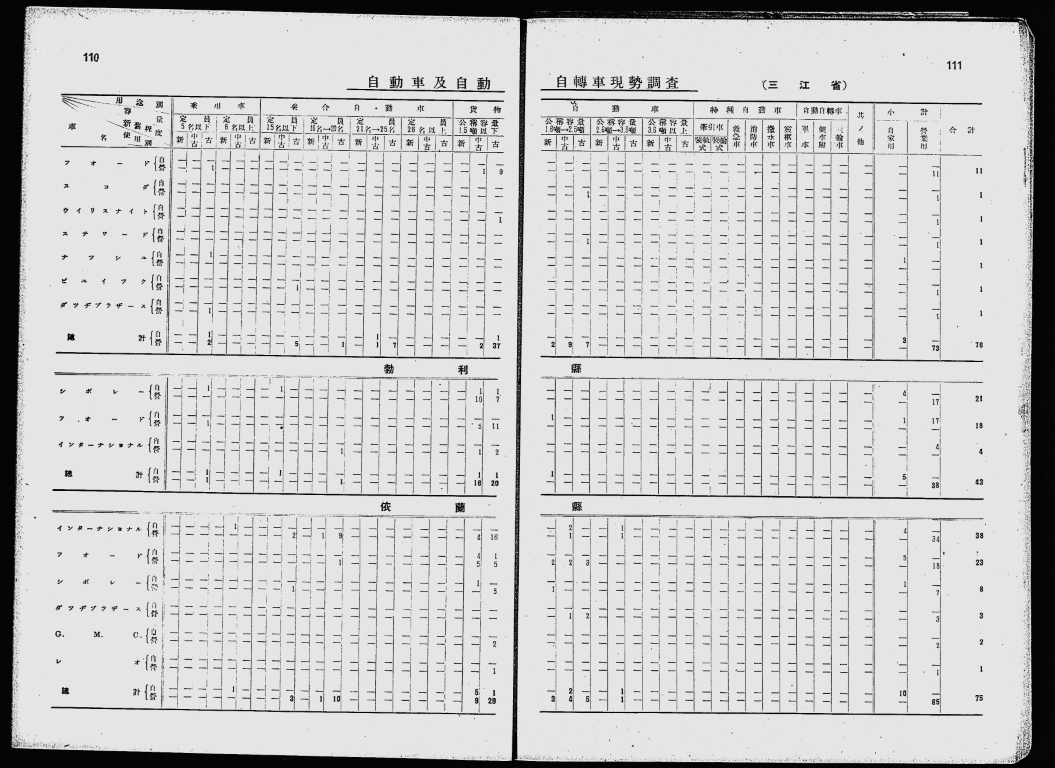 110
自動車及自動
用途別
容量
新舊程度
使用別
車名
乘用車
乘合自動車
貨物
定員5名以下
定員6名以上
定員15名以下
定員16名→20名
定員21名→25名
定員26名以上
公稱容量1.5噸以下
新 中古 古 新 中古 古 新 中古 古 新 中古 古 新 中古 古 新 中古 古 新 中古 古
フオード 自 營 1 1 9
スコダ 自 營
ウイリスナイト 自 營 1
ステワード 自 營
ナツシユ 自 營 1
ビユイツク 自 營 1
ダツヂブラザース 自 營 1
總計 自 1 1 1
營 2 5 1 1 7 2 37
勃利
シボレー 自 1 1 1 1
營 10 7
フオード 自
營 1 5 11
インターナショナル 自
營 1 1 2
總計 自 1 1 1 1
營 1 1 16 20
依蘭
インターナショナル 自 1
營 2 1 9 4 16
フオード 自 4 1
營 1 5 5
シボレー 自 1
營 1 5
ダツヂブラザース 自 營
G. M. C. 自 營 2
レオ 自 營 1
總計 自 1 5 1
營 3 1 10 9 29
111
自轉車現勢調査
(三江省)
自動車
特種自動車
自動自轉車
其ノ他
小計
合計
公稱容量1.6噸→2.5噸
公稱容量2.6噸→3.5噸
公稱容量3.6噸以上
牽引車
裝軌式 裝輪式
救急車 消防車 撒水車 靈柩車
單車 側車附 三輪車
自家用 營業用
新 中古 古 新 中古 古 新 中古 古
11 11
1 1 1
1 1
1 1 1
1 1
1 1
1 1
3
2 9 7 73 76
縣
4
17 21
1 1 17 18
4 4
1 5
38 43
縣
2 1 4
1 1 34 38
5
2 2 3 18 23
1
1 7 8
1 2 3 3
2 2
1 1
2 1 10
3 4 5 1 65 75